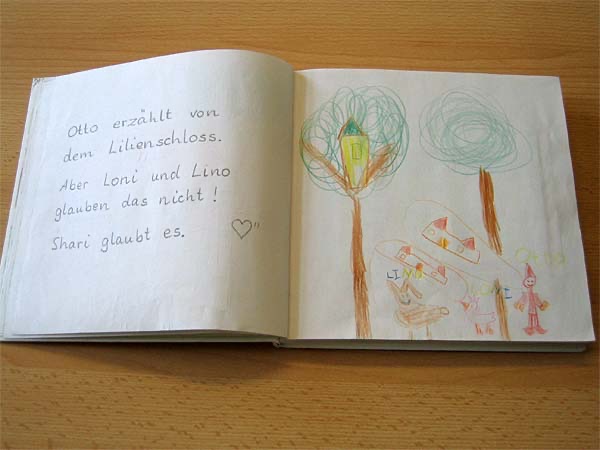 Otto erzählt von
dem Lilienschloss.
Aber Loni und Lino
glauben das nicht!
Shari glaubt es.
Otto
LINO
LONI